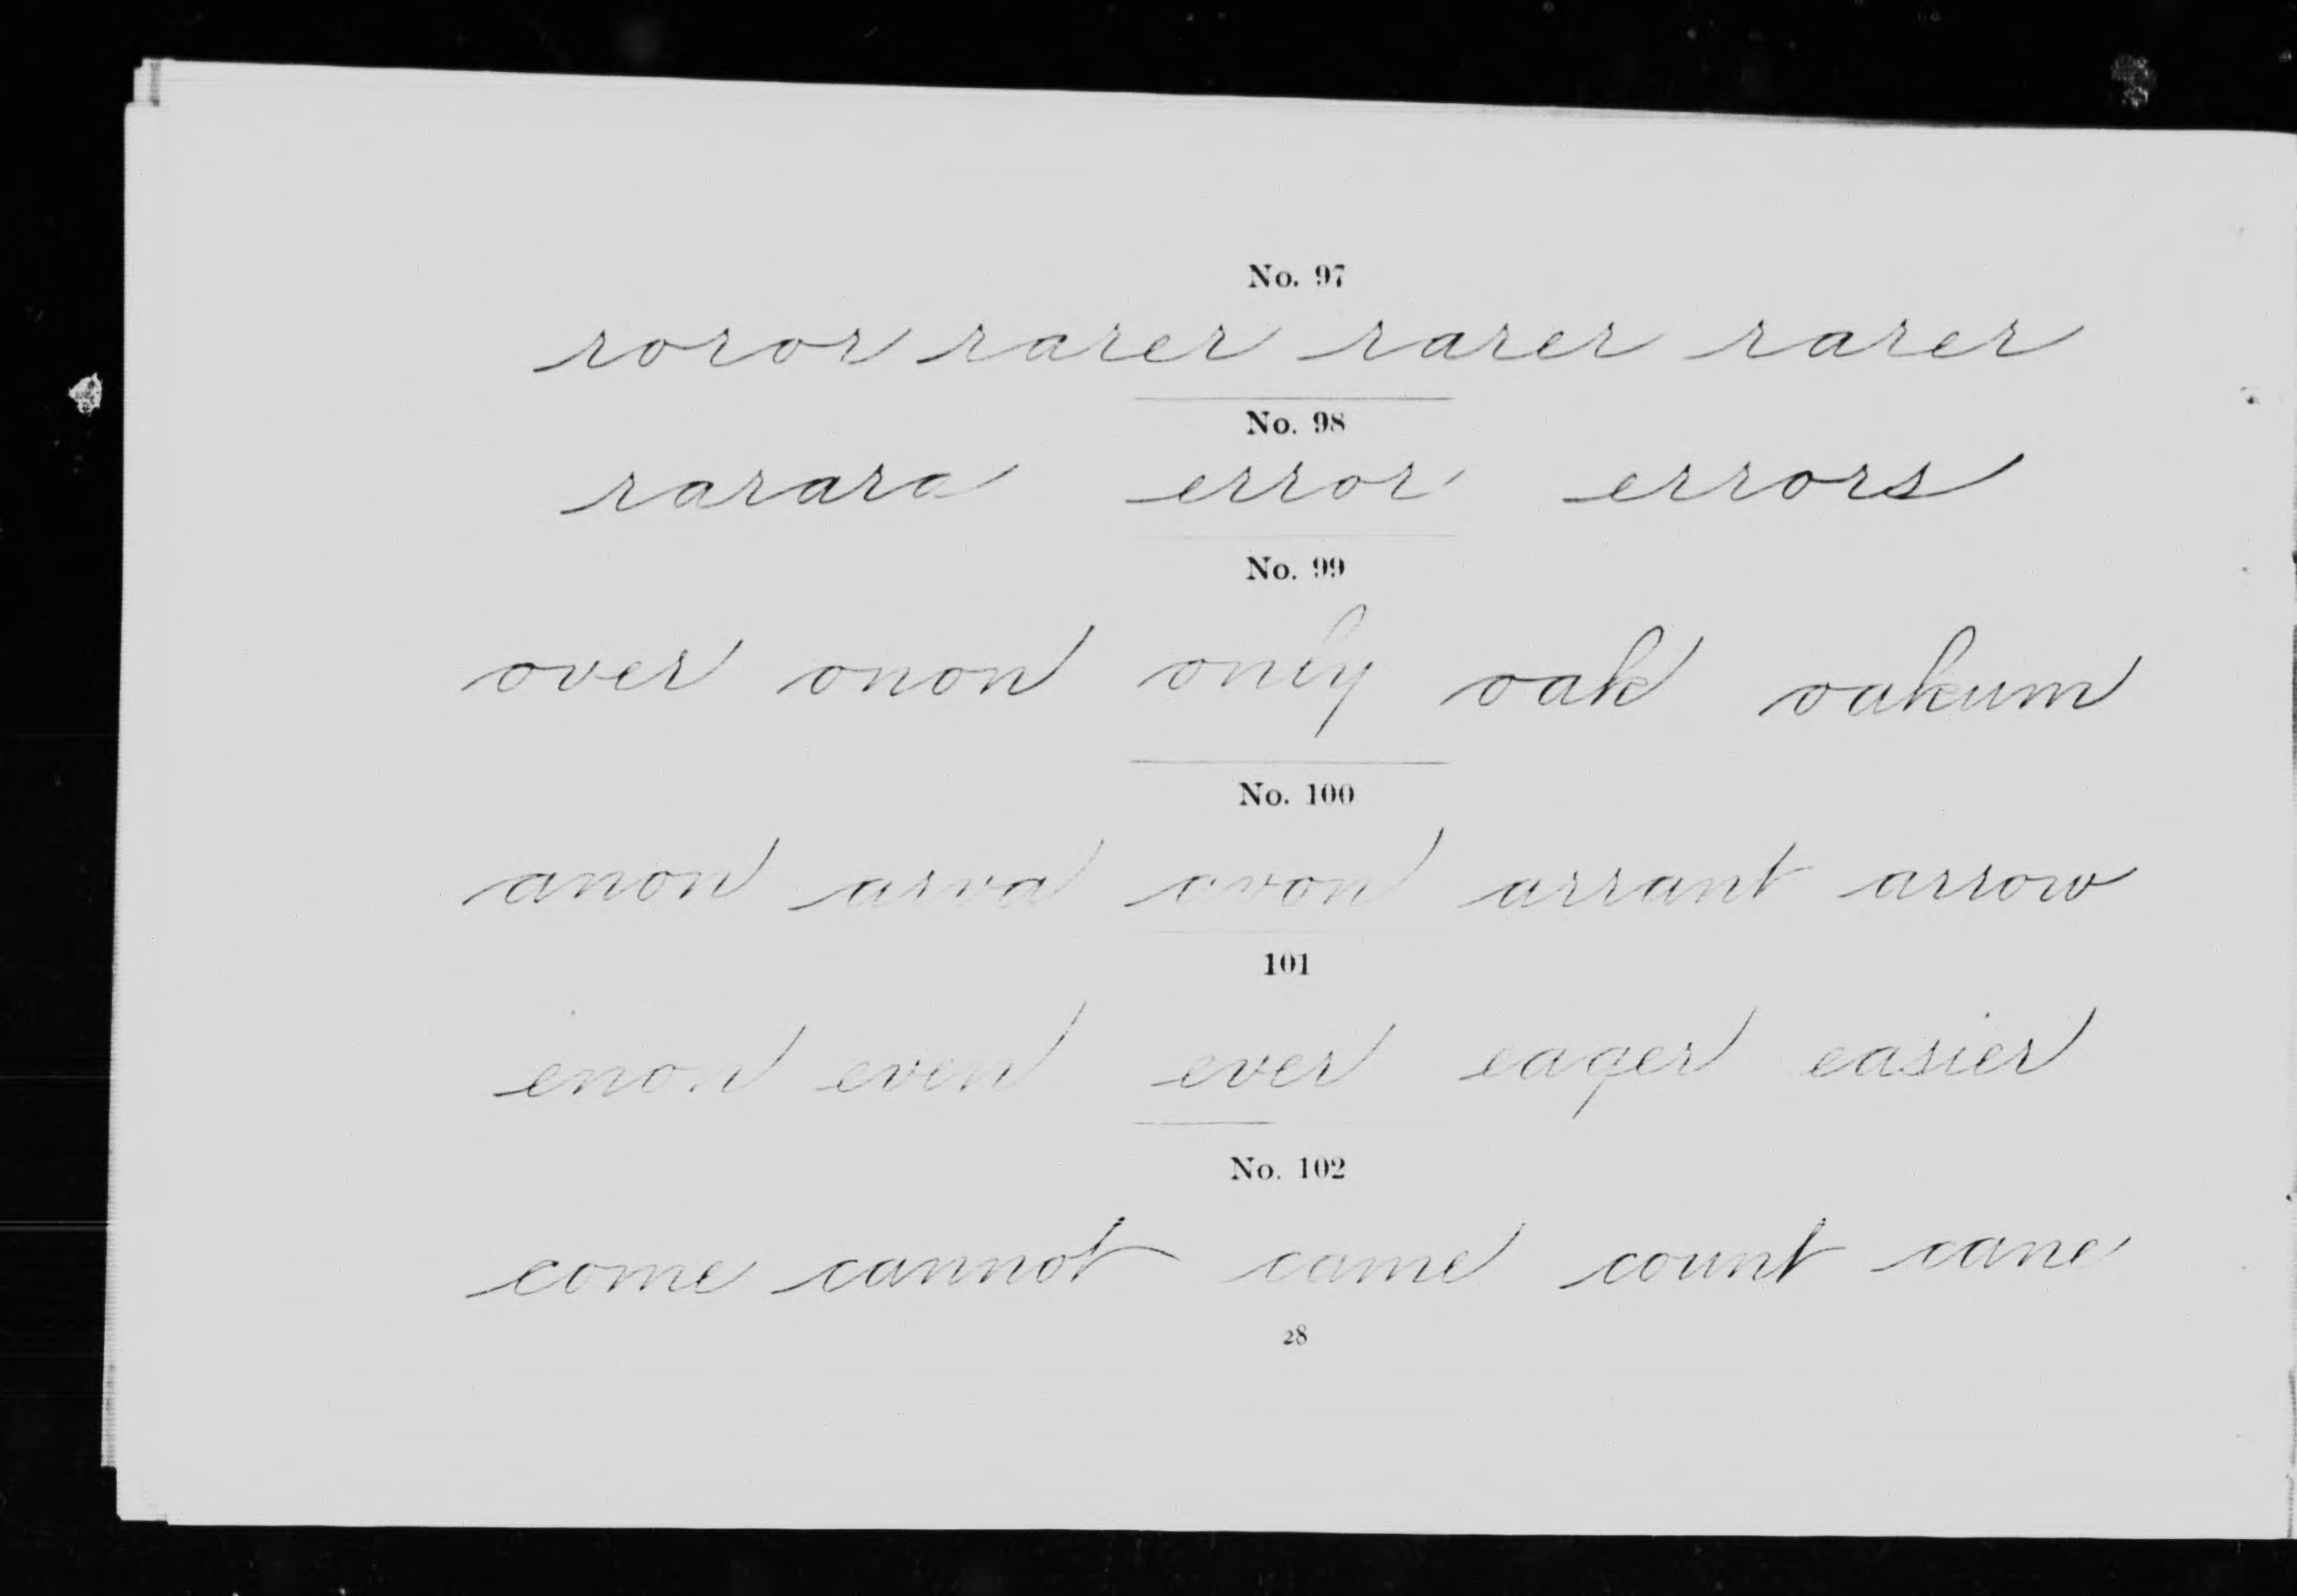 No. 97
roror rarer rarer rarer
No. 98
rarara error errors
No. 99
over onon only oak oakum
No. 100
anon arva avon arrant arrow
101
enon even ever eager easier
No. 102
come cannot came count cane
28